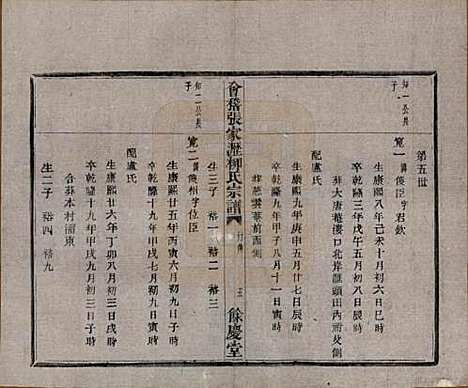 第五世
知一公長子
寬一 諱俊臣字君欽
生康熙八年己未十月初六日巳時
卒乾隆三年戊午八月初五日辰時
葬大唐菴漊口北岸
配盧氏
生康熙十九年庚申五月廿七日辰時
卒乾隆十九年甲子八月十一日寅時
葬慈雲菴前西側
生三子 裕一 裕二 裕三
會稽張家瀝柳氏宗譜
餘慶堂
知二公長子
寬二 諱俊州字位臣
生康熙廿五年丙寅六月初九日寅時
卒乾隆十九年甲戌七月初九日寅時
配盧氏
生康熙廿六年丁卯八月初三日戌時
卒乾隆十九年甲戌九月初三日辰時
合葬本村浦東
生二子 裕四 裕九